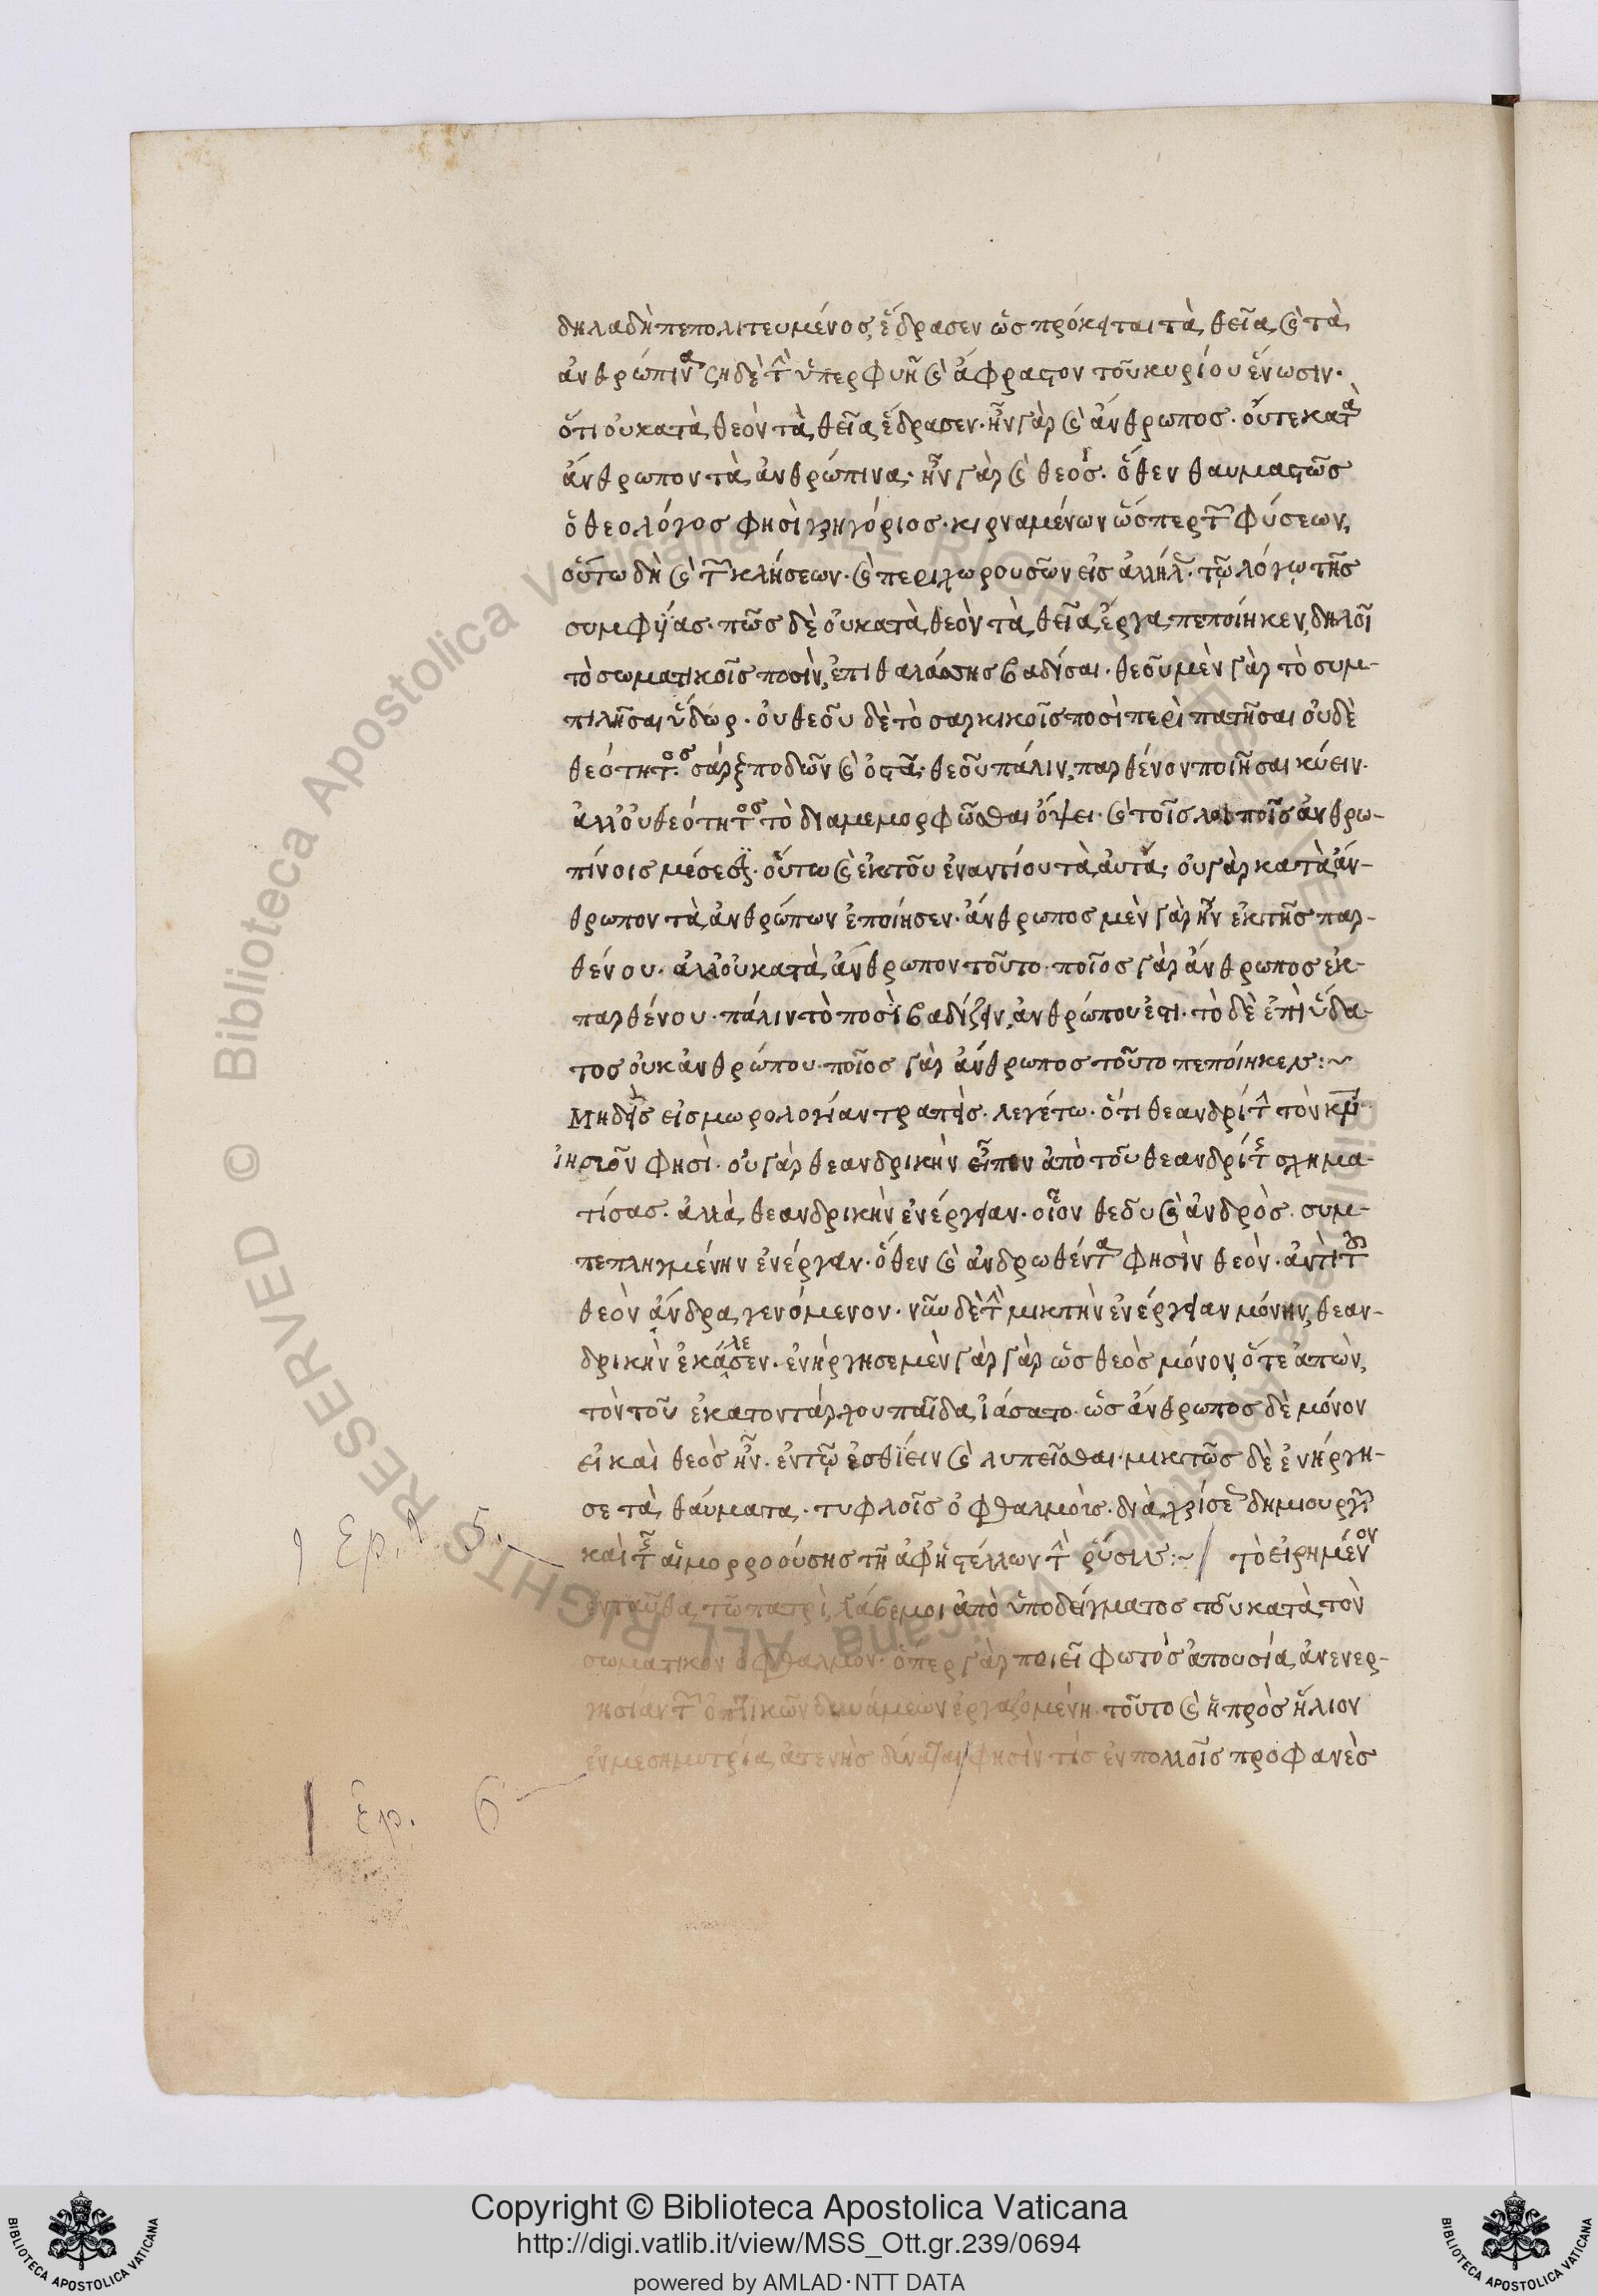 δηλαδὴ πεπολιτευμένος, ἔδρασεν ὡς πρόκειται τὰ θεῖα, καὶ τὰ
ἀνθρώπινα ζη δὲ τὴν ὑπερφυῆ καὶ ἄφραστον τοῦ κυρίου ἕνωσιν·
ὅτι οὐ κατὰ θεὸν τὰ θεῖα ἔδρασεν· ἦν γὰρ καὶ ἄνθρωπος· οὔτε κατὰ
ἄνθρωπον τὰ ἀνθρώπινα· ἦν γὰρ καὶ θεός· ὅθεν θαυμαστῶς
ὁ θεολόγος φησὶ γρηγόριος· κιρναμένων ὥσπερ τῶν φύσεων,
οὕτω δὴ καὶ τῶν κλήσεων· καὶ περιχωρουσῶν εἰς ἀλλήλας· τῷ λόγῳ τῆς
συμφυΐας· πῶς δὲ οὐ κατὰ θεὸν τὰ θεῖα ἔργα πεποίηκεν, δηλοῖ
τὸ σωματικοῖς ποσὶν, ἐπι θαλάσσης βαδίσαι· θεοῦ μὲν γὰρ τὸ συμ-
πιλῆσαι ὕδωρ· οὐ θεοῦ δὲ τὸ σαρκικοῖς ποσὶ περὶ πατῆσαι οὐδὲ
θεότητος· σὰρξ ποδῶν καὶ ὀστᾶ· θεοῦ πάλιν, παρθένον ποιῆσαι κύειν·
ἀλλ' οὐ θεότητος τὸ διαμεμορφῶσθαι ὄψει· καὶ τοῖς λοιποῖς ἀνθρω-
πίνοις μέρεσι· οὕτω καὶ ἐκ τοῦ ἐναντίου τὰ αὐτά· οὐ γὰρ κατὰ ἄν-
θρωπον τὰ ἀνθρώπων ἐποίησεν· ἄνθρωπος μὲν γὰρ ἦν ἐκ τῆς παρ-
θένου· ἀλλ' οὐ κατὰ ἄνθρωπον τοῦτο· ποῖος γὰρ ἄνθρωπος ἐκ
παρθένου· πάλιν τὸ ποσὶ βαδίζειν, ἀνθρώπου ἐστι· τὸ δὲ ἐπὶ ὕδα-
τος οὐκ ἀνθρώπου· ποῖος γὰρ ἄνθρωπος τοῦτο πεποίηκεν:~
Μηδεὶς εἰς μωρολογίαν τραπεὶς· λεγέτω· ὅτι θεανδρίτην τὸν κύριον
ἰησοῦν φησὶ· οὐ γὰρ θεανδρικὴν εἶπεν ἀπὸ τοῦ θεανδρίτης σχημα-
τίσας· ἀλλὰ θεανδρικὴν ἐνέργειαν· οἷον θεοῦ καὶ ἀνδρὸς συμ-
πεπληγμένην ἐνέργειαν· ὅθεν καὶ ἀνδρωθέντα φησὶν θεὸν· ἀντὶ τοῦ
θεὸν ἄνδρα γενόμενον· νῦν δὲ τὴν μικτὴν ἐνέργειαν μόνην, θεαν-
δρικὴν ἐκάλεσεν· ἐνήργησε μὲν γὰρ γὰρ ὡς θεὸς μόνον, ὅτε ἀπὼν,
τὸν τοῦ ἑκατοντάρχου παῖδα ἰάσατο· ὡς ἄνθρωπος δὲ μόνον
εἰ καὶ θεὸς ἦν· ἐν τῷ ἐσθίειν καὶ λυπεῖσθαι· μικτῶς δὲ ἐνήργη-
σε τὰ θαύματα· τυφλοῖς ὀφθαλμοὶς· διὰ χρίσεως δημιουργῶν
καὶ τῆς αἱμορροούσης τῇ ἀφῇ στέλλων τὴν ῥύσιν:~ / τὸ εἰρημένον
1 Ep. 5.
ἐνταῦθα τῷ πατρὶ, λάβε μοι ἀπὸ ὑποδείγματος τοῦ κατὰ τὸν
σωματικὸν ὀφθαλμόν· ὅπερ γὰρ ποιεῖ φωτὸς ἀπουσία ἀνενερ-
γησίαν τῶν ὀπτικῶν δυνάμεων ἐργαζομένη· τοῦτο καὶ ἡ πρὸς ἥλιον
ἐν μεσημβρία ἀτενὴς δύναται / φησὶν τίς ἐν πολλοῖς προφανὲς
Ep. 6
Copyright © Biblioteca Apostolica Vaticana
http://digi.vatlib.it/view/MSS_Ott.gr.239/0694
powered by AMLAD·NTT DATA